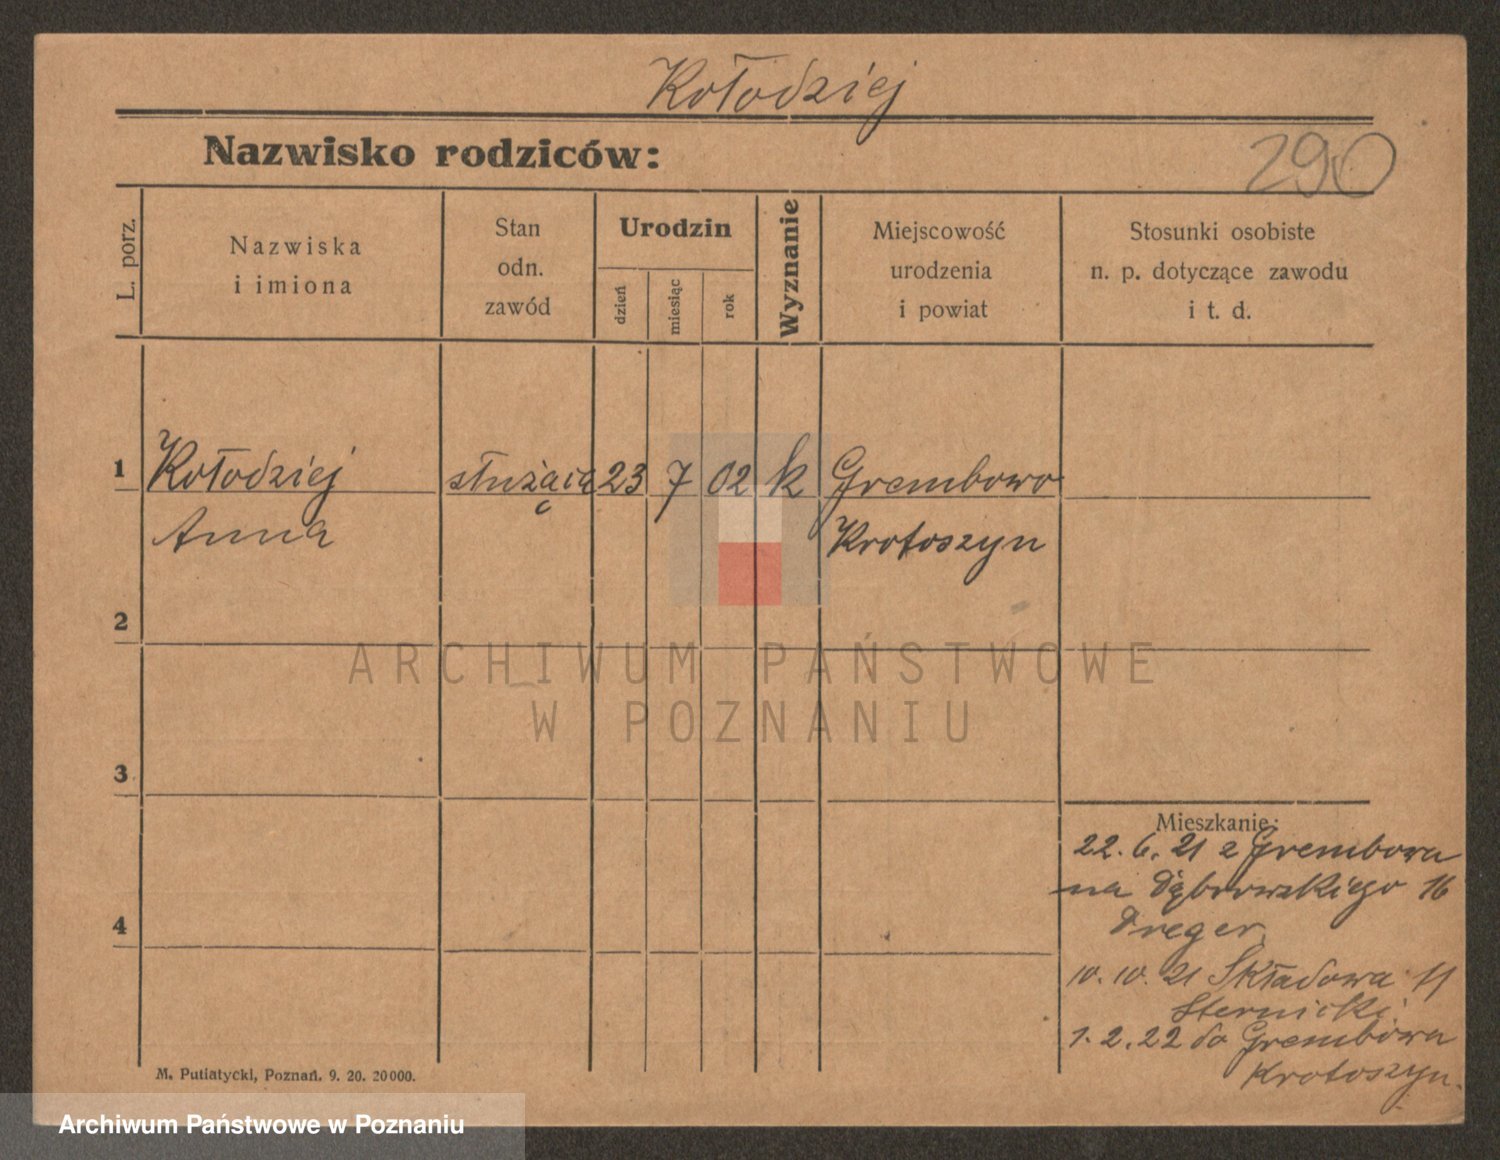 Kołodziej
Nazwisko rodziców:
290
L. porz.
Nazwiska
i imiona
Stan
odn.
zawód
Urodzin
dzień
miesiąc
rok
Wyznanie
Miejscowość
urodzenia
i powiat
Stosunki osobiste
n. p. dotyczące zawodu
i t. d.
1 Kołodziej służąca 23 7 02 k Grembowo
Anna Krotoszyn
2
ARCHIWUM PAŃSTWOWE
W POZNANIU
3
4
Mieszkanie:
22. 6. 21 z Grembowa
na Dąbrowskiego 16
Dreger
10. 10. 21 Składowa 11
Sternicki
1. 2. 22 do Grembowa
Krotoszyn.
M. Putiatycki, Poznań. 9. 20. 20000.
Archiwum Państwowe w Poznaniu